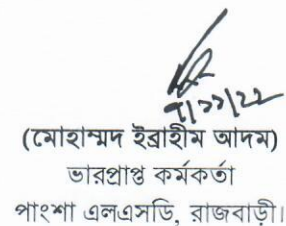 ৭/১১/২২
(মোহাম্মদ ইব্রাহীম আদম)
ভারপ্রাপ্ত কর্মকর্তা
পাংশা এলএসডি, রাজবাড়ী।